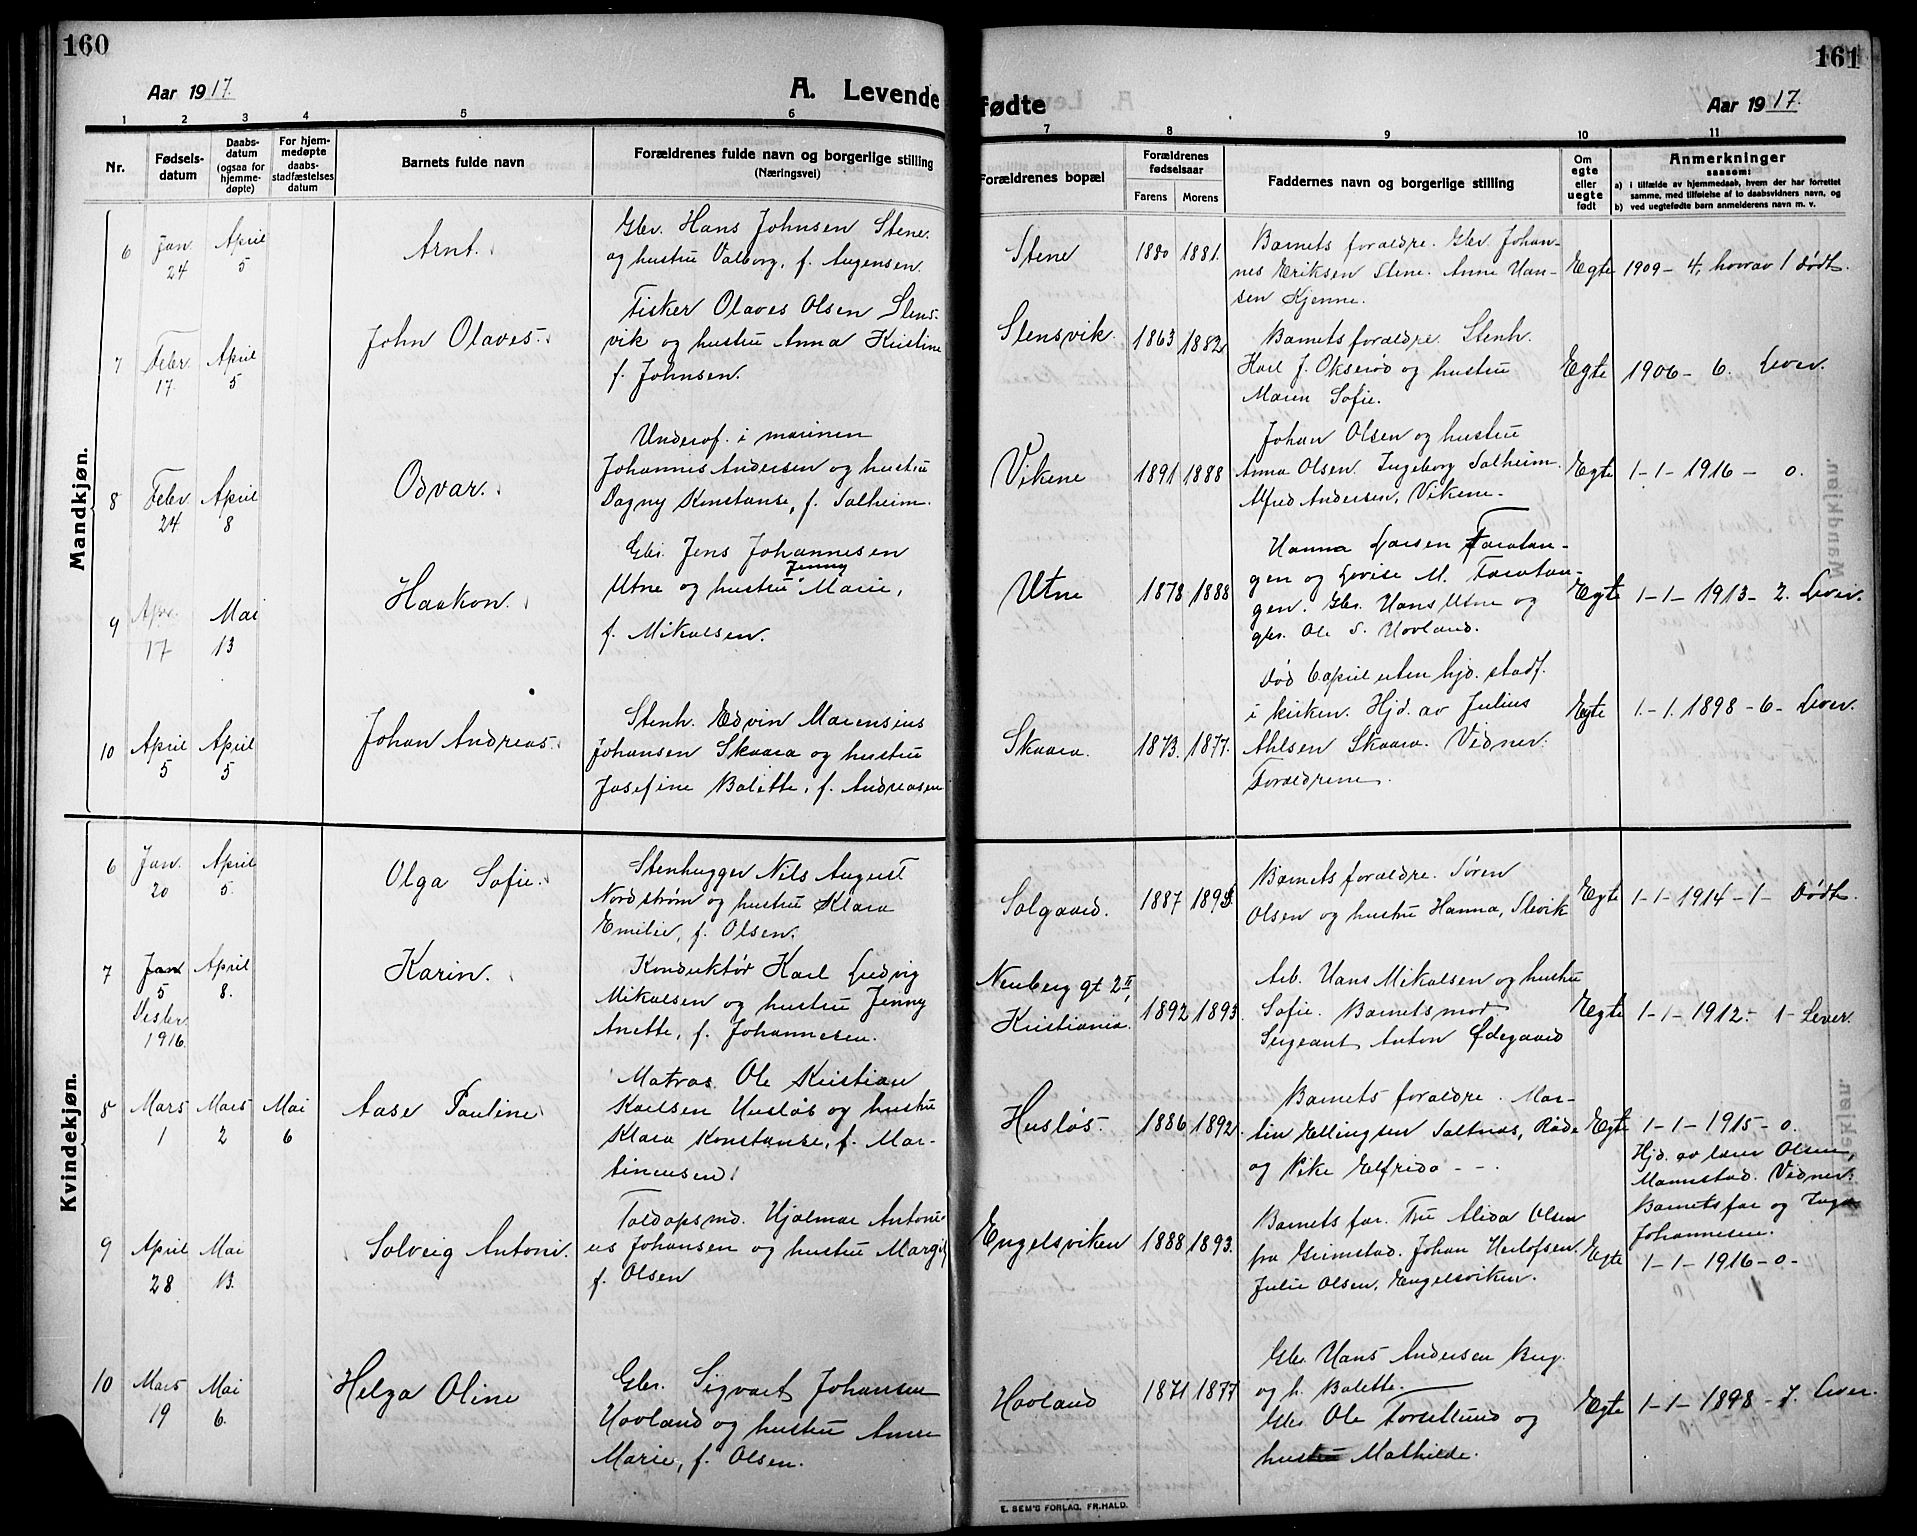 160
161
Aar 1917.
A. Levende
fødte
Aar 1917.
1 2 3 4 5 6 7 8 9 10 11
Nr.
Fødsels-
datum
Daabs-
datum
(ogsaa for
hjemme-
døpte)
For hjem-
medøpte
daabs-
stadfæstelses
datum
Barnets fulde navn
Forældrenes fulde navn og borgerlige stilling
(Næringsvei)
Forældrenes bopæl
Forældrenes
fødselsaar
Farens Morens
Faddernes navn og borgerlige stilling
Om
egte
eller
uegte
født
Anmerkninger
saasom:
a) i tilfælde av hjemmedaab, hvem der har forrettet
samme, med tilføielse af to daabsvidners navn, og
b) ved uegtefødte barn anmelderens navn m. v.
Mandkjøn.
6
Jan.
24
April
5
Arnt.
Gbr. Hans Johnsen Stene
og hustru Valborg, f. Augensen.
Stene
1880 1881.
Barnets forældre. Gbr. Johan-
nes Eriksen Stene. Anne Han-
sen Kjenne.
Egte
1909 - 4, hvorav 1 dødt.
7
Febr.
17
April
5
John Olaves.
Fisker Olaves Olsen Slens-
vik og hustru Anna Kristine
f. Johnsen.
Slensvik.
1863 1882
Barnets forældre. Stenh.
Karl J. Okserød og hustru
Maren Sofie.
Egte
1906 - 6. Lever.
8
Febr
24
April
8
Odvar.
Underof. i marinen
Johannes Andersen og hustru
Dagny Konstanse, f. Solheim.
Vikene
1891 1888
Johan Olsen og hustru
Anna Olsen. Ingeborg Solheim.
Alfred Andersen, Vikene.
Egte
1-1-1916 - 0.
9
Apr.
17
Mai
13
Haakon.
Gbr. Jens Johannesen
Jenny
Utne og hustru Marie,
f. Mikalsen.
Utne
1878 1888
Hanna Larsen Toratan-
gen og Lovise M. Toratan-
gen. Gbr. Hans Utne og
gbr. Ole S. Hovland.
Egte
1-1-1913 - 2. Lever.
10
April
5
April
5
Johan Andreas.
Stenh. Edvin Marensius
Johansen Skaara og hustru
Josefine Balette, f. Andreasen
Skaara.
1873. 1877.
Død 6 april uten hjd. stadf.
i kirken. Hjd. av Julius
Ahlsen Skaara. Vidner:
Forældrene.
Egte
1-1. 1898 - 6 - Lever.
Kvindekjøn.
6
Jan.
20
April
5.
Olga Sofie.
Stenhugger Nils August
Nordstrøm og hustru Klara
Emilie, f. Olsen.
Solgaard.
1887
Barnets forældre. Søren
Olsen og hustru Hanna, Slevik
Egte
1-1-1914 - 1 - Dødt.
7
Jan
5
Desbr.
1916.
April
8.
Karin.
Konduktør Karl Ludvig
Mikalsen og hustru Jenny
Anette, f. Johannesen.
Neuberg gt 2 II,
Kristiania.
1892 1893.
Arb. Hans Mikalsen og hustru
Sofie. Barnets mor
Sergeant Anton Ødegaard
Egte
1-1-1912 - 1 - Lever.
8
Mars
1
Mars
2
Mai
6
Aase Pauline
Matros Ole Kristian
Karlsen Husløs og hustru
Klara Konstanse, f. Mar-
tinussen.
Husløs.
1886 1892.
Barnets forældre. Mar-
tin Ellingsen Saltnas, Råde
og Pike Elfrida
Egte
1-1-1915 - 0.
Hjd. av lærer Olsen,
Mannstad. Vidner:
Barnets far og Inga
Johannesen.
9
April
28
Mai
13.
Solveig Antonie.
Toldopsmd. Hjalmar Antoni-
us Johansen og hustru Margit
f. Olsen
Engelsviken
1888 1893.
Barnets far. Fru Alida Olsen
fra Grimstad. Johan Herlofsen.
Julie Olsen, Engelsviken.
Egte
1-1-1916 - 0 -
10
Mars
19
Mai
6.
Helga Oline
Gbr. Sigvart Johansen
Hovland og hustru Anne
Marie, f. Olsen.
Hovland
1871 1877
Gbr. Hans Andersen Berg.
og h. Balette.
Gbr. Ole Torsellund og
hustru Mathilde.
Egte
1-1-1898 - 7. Lever.
E. SEM'S FORLAG, FR.HALD.